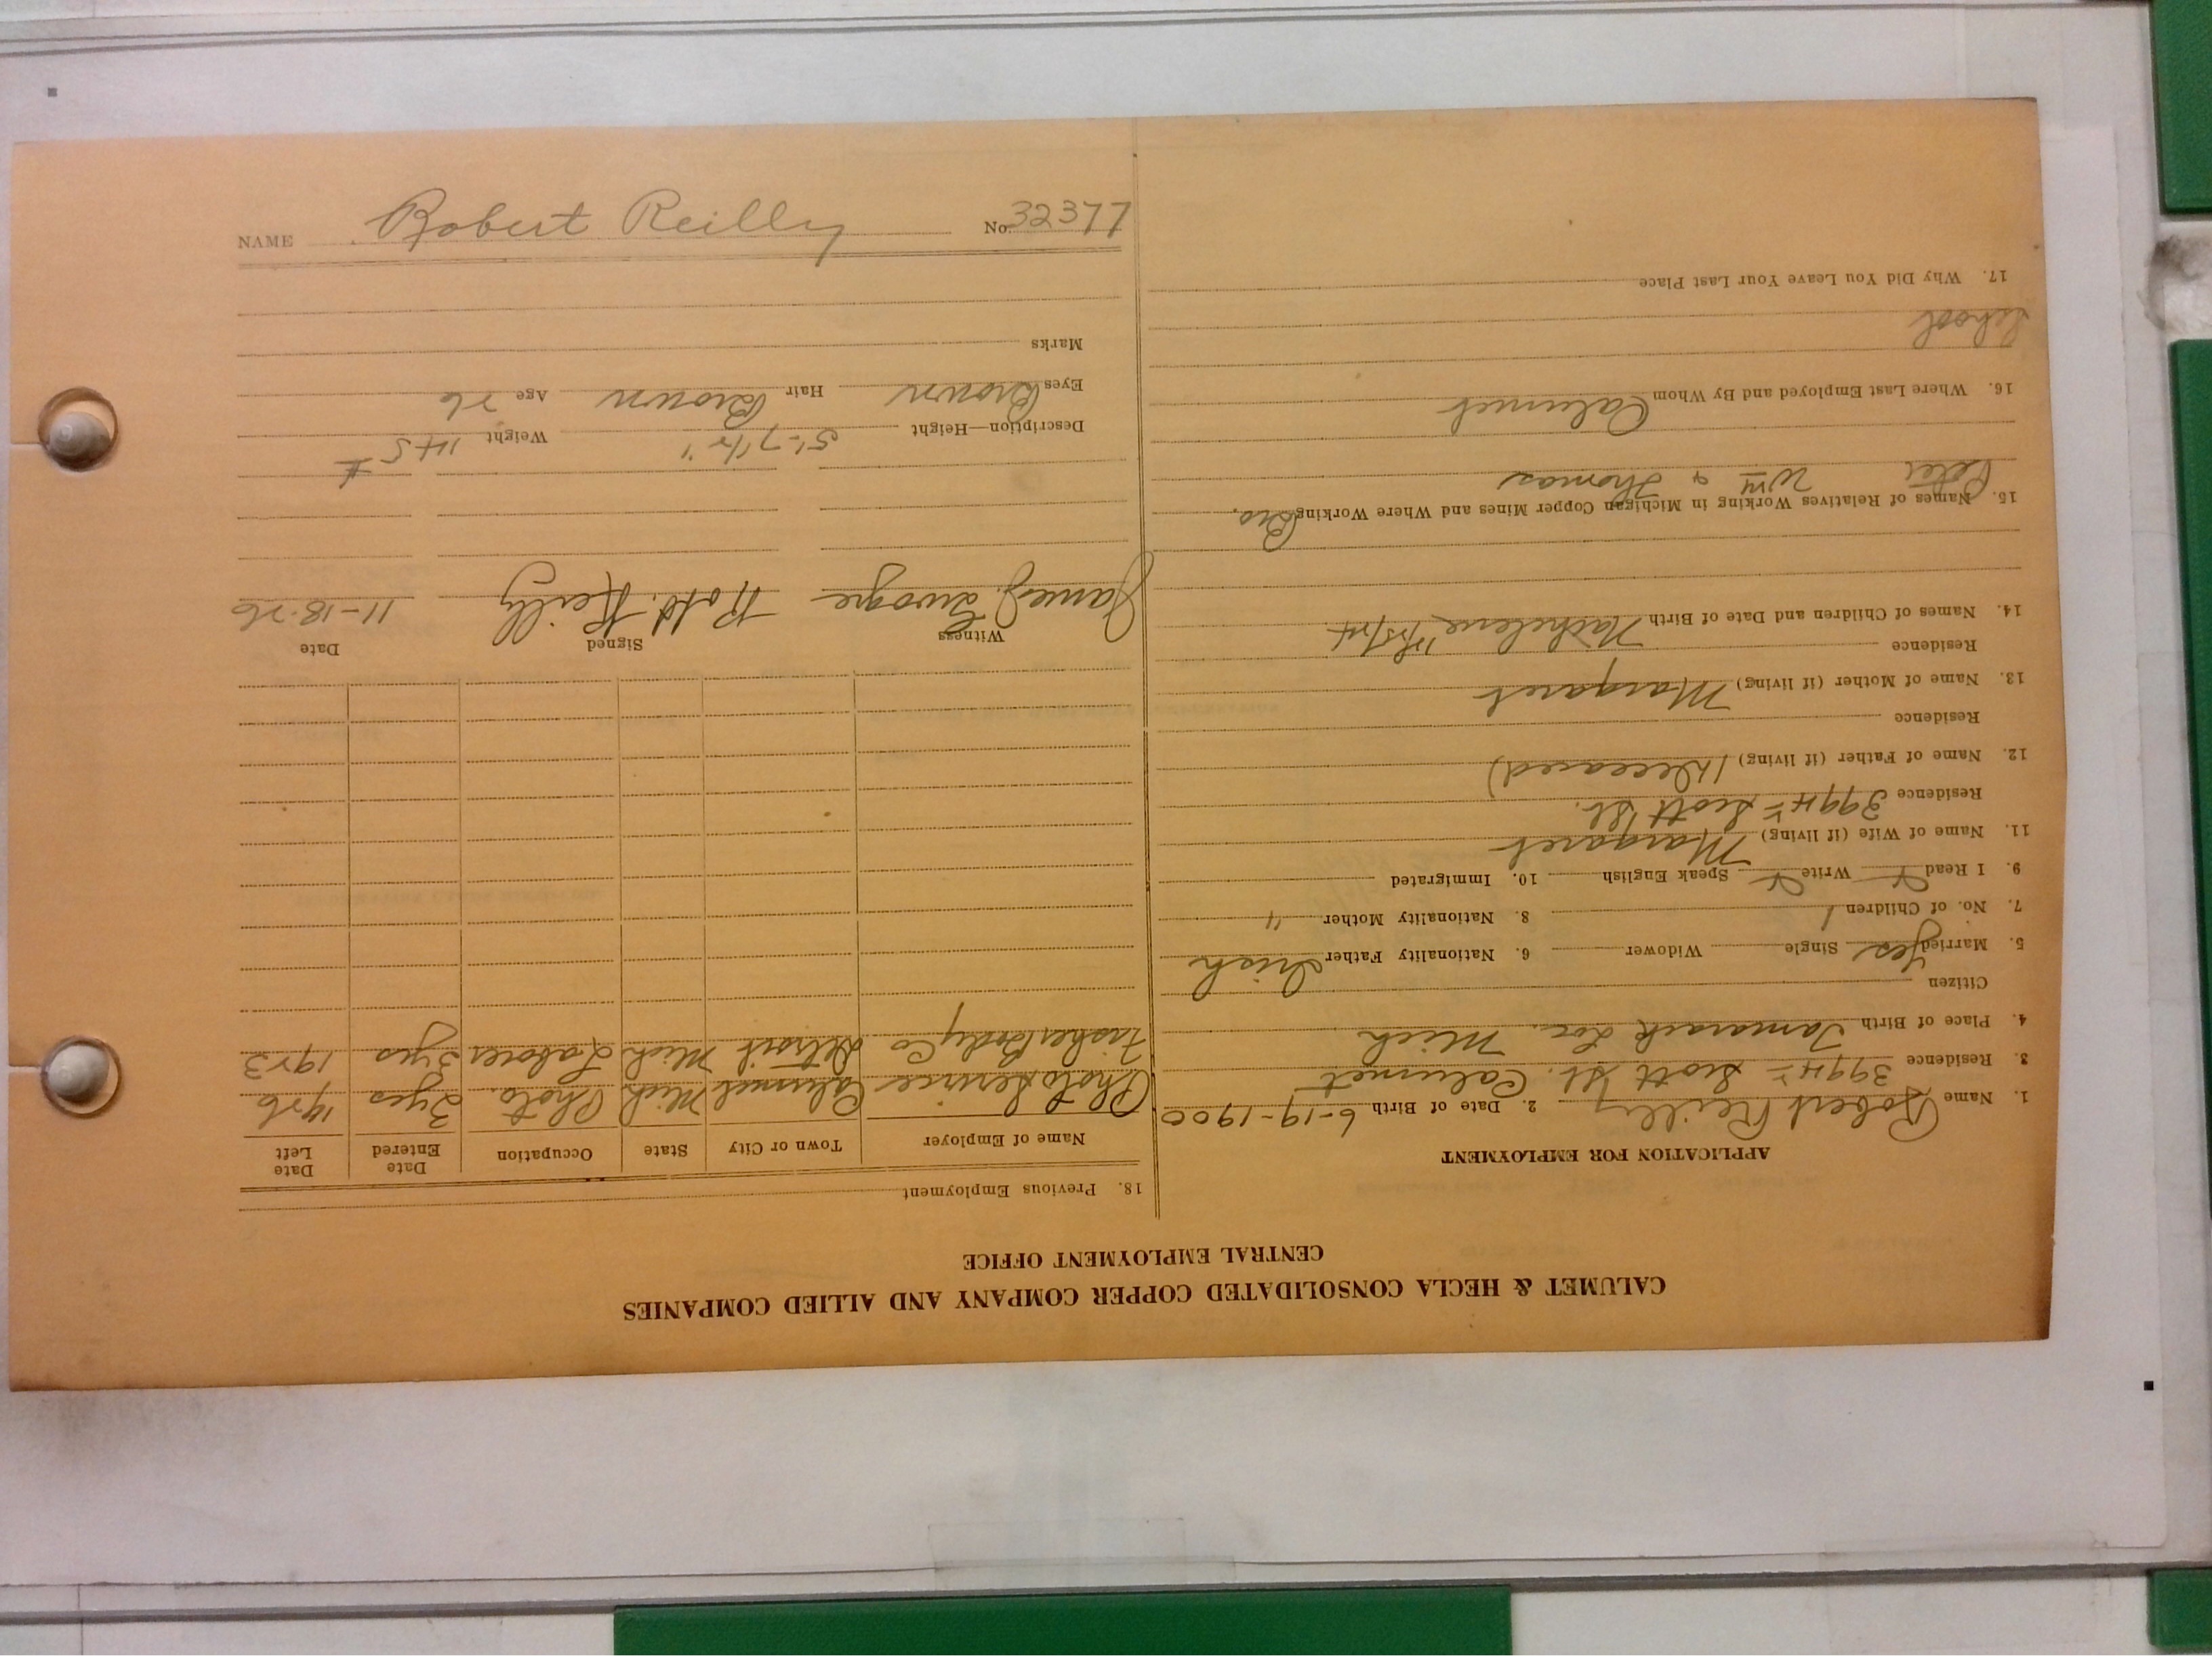 CALUMET & HECLA CONSOLIDATED COPPER COMPANY AND ALLIED COMPANIES
CENTRAL EMPLOYMENT OFFICE
APPLICATION FOR EMPLOYMENT
1. Name Robert Reilly 2. Date of Birth 6-19-1900
3. Residence 3994 Scott St. Calumet
4. Place of Birth Tamarack Loc. Mich
Citizen
5. Married Yes Single Widower 6. Nationality Father Irish
7. No. of Children 1 8. Nationality Mother "
9. I Read Write Speak English 10. Immigrated
11. Name of Wife (if living) Margaret
Residence 3994 Scott St.
12. Name of Father (if living) (Deceased)
Residence
13. Name of Mother (if living) Margaret
Residence
14. Names of Children and Date of Birth
15. Names of Relatives Working in Michigan Copper Mines and Where Working Bro.
Peter Wm & Thomas
16. Where Last Employed and By Whom Calumet
School
17. Why Did You Leave Your Last Place
18. Previous Employment
Name of Employer Town or City State Occupation Date Entered Date Left
Photo Service Calumet Mich Photo. 3 yrs 1926
Fisher Body Co Detroit Mich Laborer 3 yrs 1923
Witness Signed Date
James Robt. Reilly 11-18-26
Description—Height 5'-7 1/2" Weight 145 #
Eyes Brown Hair Brown Age 26
Marks
NAME Robert Reilly No. 32377